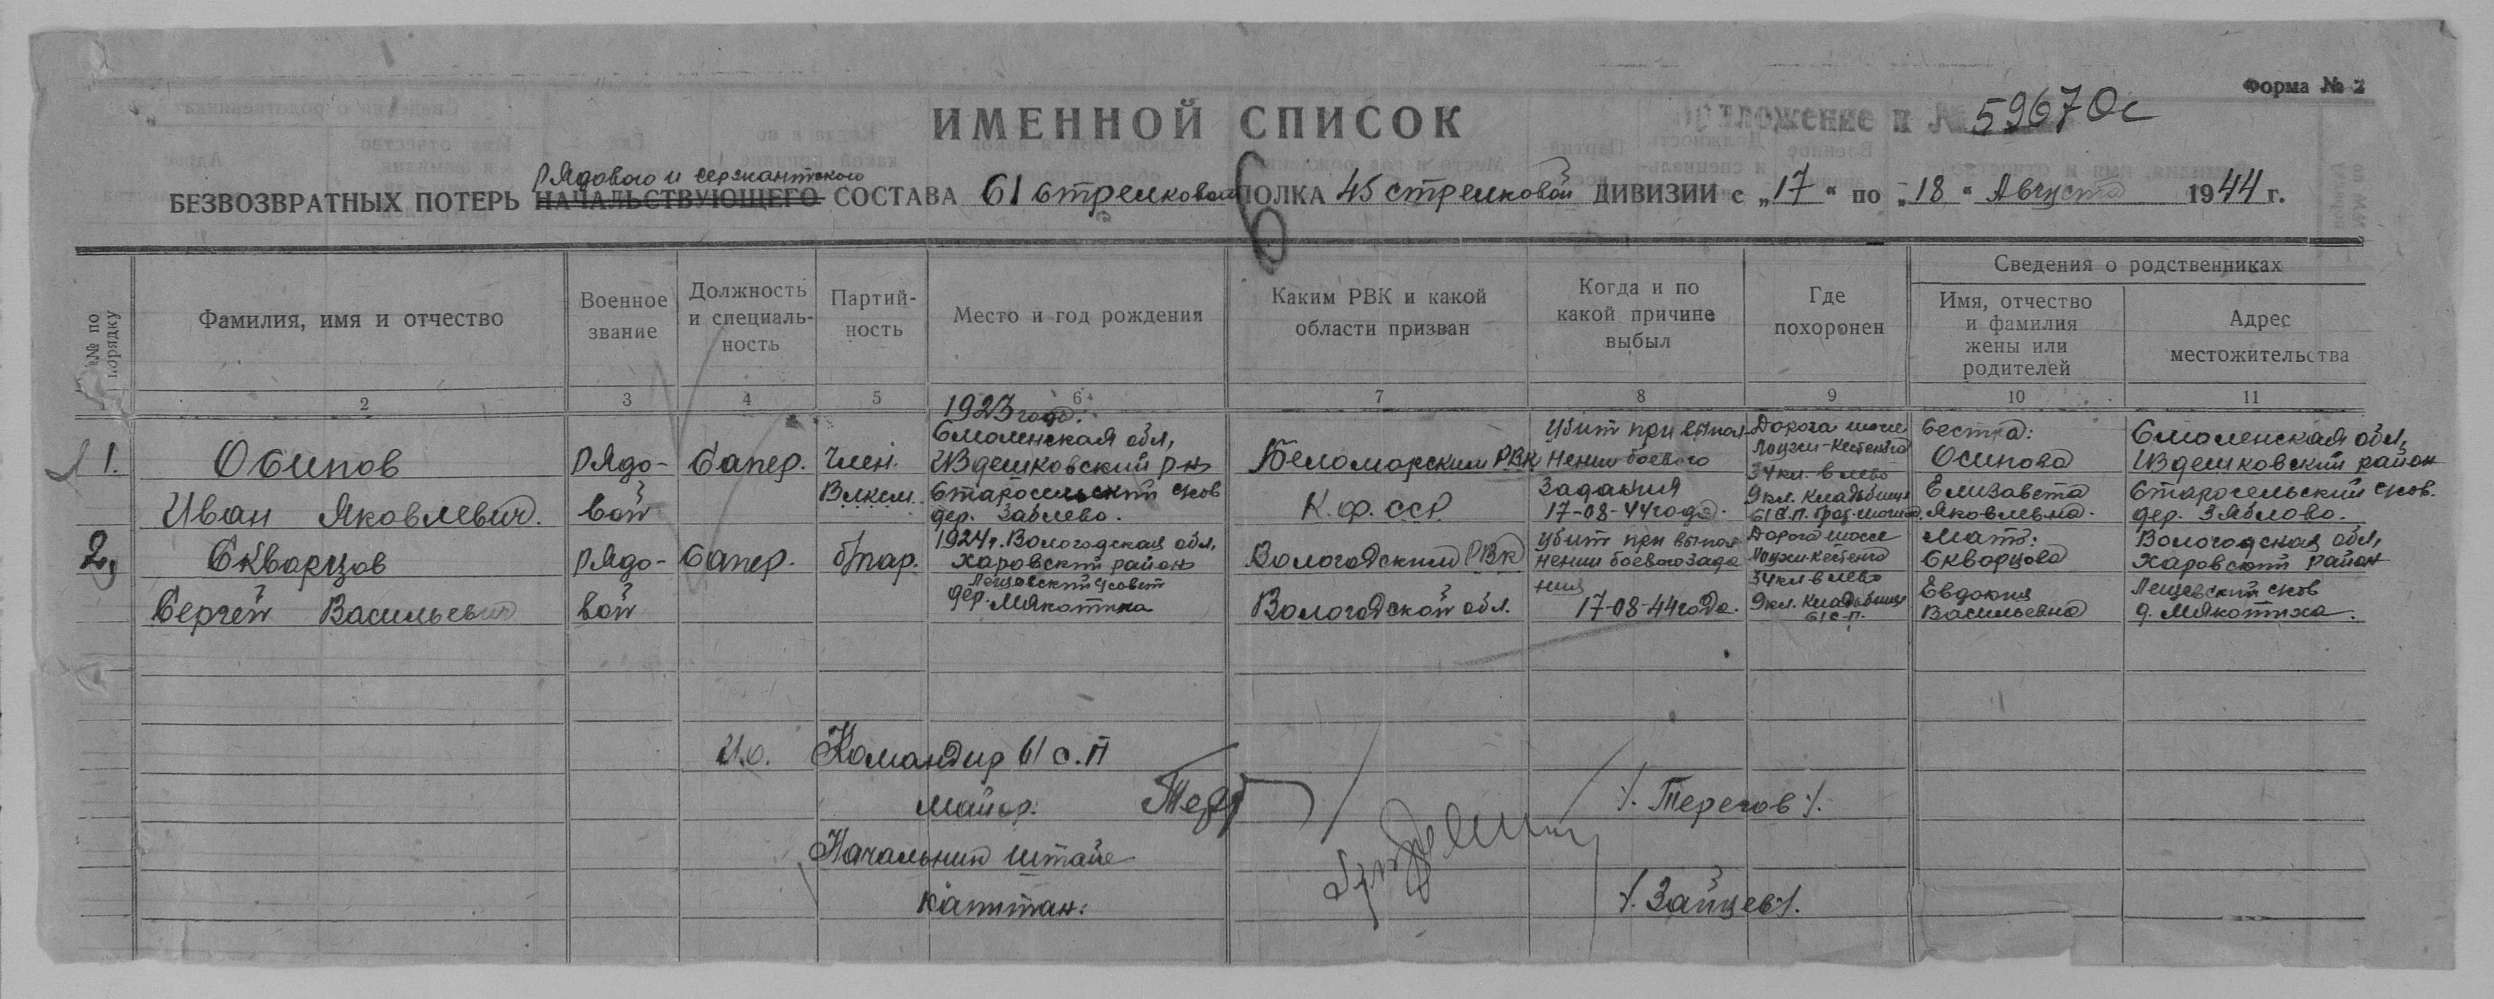 Форма № 2
ИМЕННОЙ СПИСОК
Приложение к № 59670с
рядового и сержантского
БЕЗВОЗВРАТНЫХ ПОТЕРЬ НАЧАЛЬСТВУЮЩЕГО СОСТАВА 61 стрелковой ПОЛКА 45 стрелковой ДИВИЗИИ с „17“ по „18“ Августа 1944 г.
6
№ по порядку
Фамилия, имя и отчество
Военное
звание
Должность
и специаль-
ность
Партий-
ность
Место и год рождения
Каким РВК и какой
области призван
Когда и по
какой причине
выбыл
Где
похоронен
Сведения о родственниках
Имя, отчество
и фамилия
жены или
родителей
Адрес
местожительства
2 3 4 5 6 7 8 9 10 11
1.
Осипов
Иван Яковлевич.
Рядо-
вой
Сапер.
Член.
Влксм.
1923 года.
Смоленская обл,
Издешковский р-н
Старосельский сов
дер. Заблево.
Беломорским РВК
К.Ф.ССР
Убит при выпол
нении боевого
задания
17-08-44 года.
Дорога шоссе
Лоухи-Кестенга
34 кл. в лево
9 кл. Кладбище
61 С.П.
Сестра:
Осипова
Елизавета
Яковлевна.
Смоленская обл,
Издешковский район
Старосельский сов.
дер. Зяблово.
2,
Скворцов
Сергей Васильевич
Рядо-
вой
Сапер.
б/пар.
1924 г. Вологодская обл,
Харовский район
Лещевский с/совет
дер. Мякотиха
Вологодским РВК
Вологодской обл.
Убит при выпол
нении боевого зада
ния
17-08-44 года.
Дорога шоссе
Лоухи-Кестенга
34 кл в лево
9 кл. Кладбище
61 С-П.
Мать:
Скворцова
Евдокия
Васильевна
Вологодская обл,
Харовский район
Лещевский сов
д. Мякотиха.
И.о. Командир 61 с.П
Майор: /. Терехов /.
Начальник штаба
капитан: /. Зайцев /.